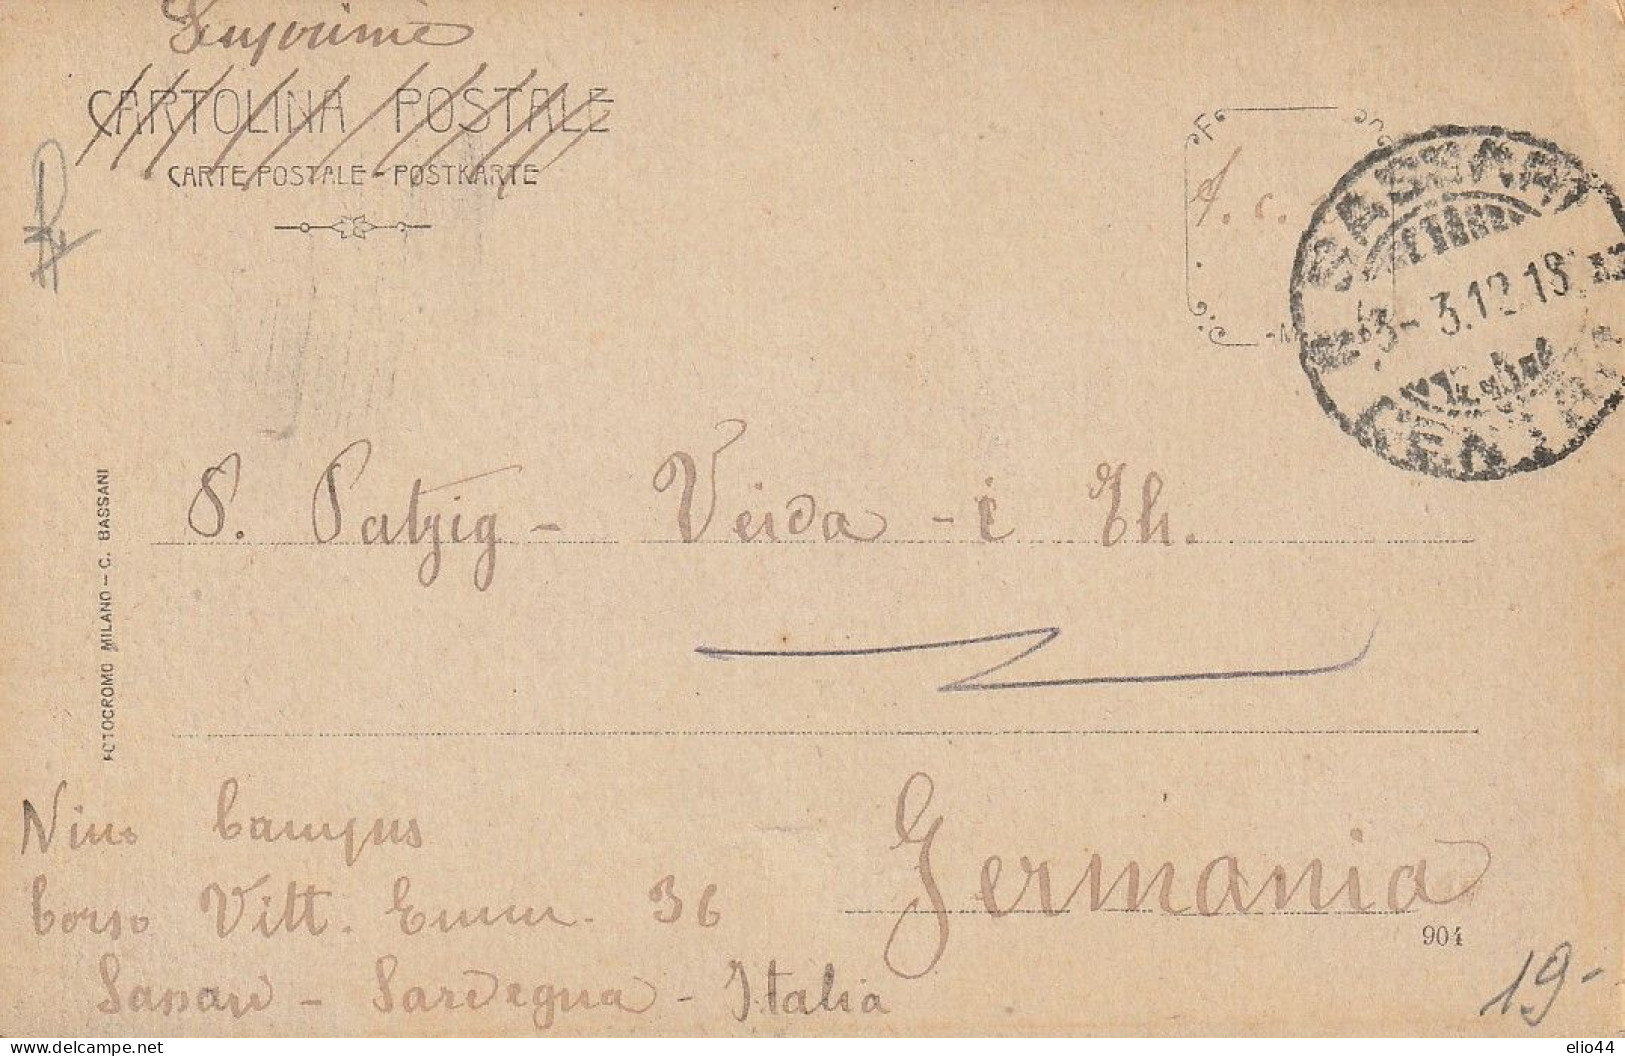 Imprimé
CARTOLINA POSTALE
CARTE POSTALE - POSTKARTE
SASSARI
3-3.12.18
CENTRO
FOTOCROMO MILANO - C. BASSANI
P. Patzig - Veida - i Th.
Nino Campus
Corso Vitt. Emm. 36
Sassari - Sardegna - Italia
Germania
904
19-
delcampe.net
elio44